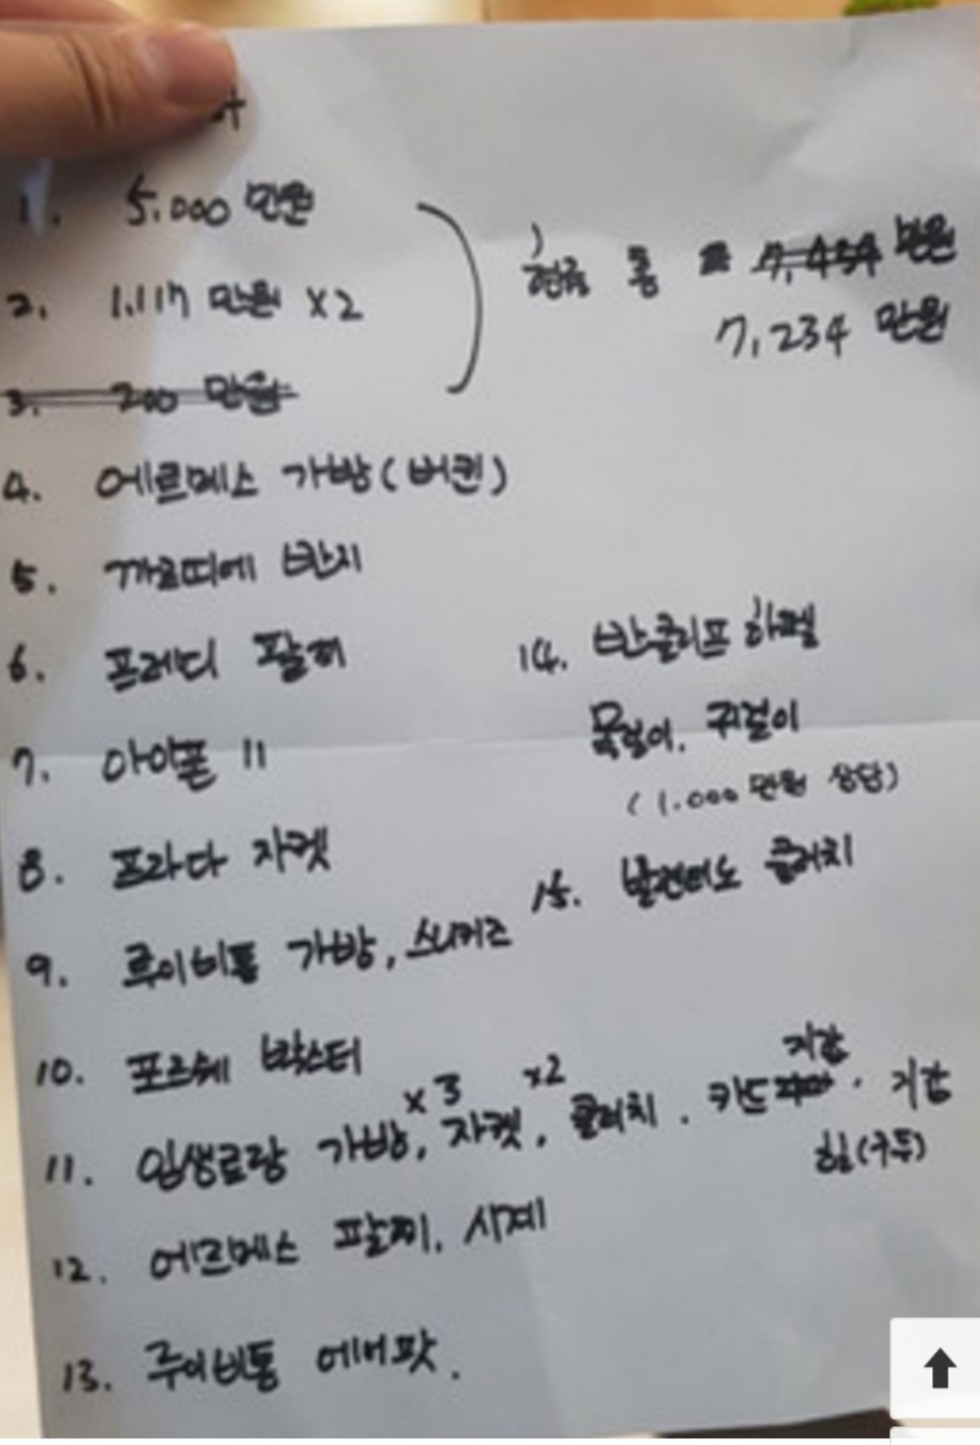 1. 5.000 만원
2. 1.117 만원 x2
3. 200 만원
현금 총 7,454 만원
7,234 만원
4. 에르메스 가방 (버킨)
5. 까르띠에 반지
6. 프레디 팔찌
7. 아이폰 11
8. 프라다 자켓
9. 루이비통 가방, 스니커즈
10. 포르쉐 박스터
11. 입생로랑 가방 x3, 자켓 x2, 클러치. 카드지갑, 지갑
힐(구두)
12. 에르메스 팔찌, 시계
13. 루이비통 에어팟.
14. 반클리프 아펠
목걸이, 귀걸이
(1.000 만원 상당)
15. 발렌티노 클러치